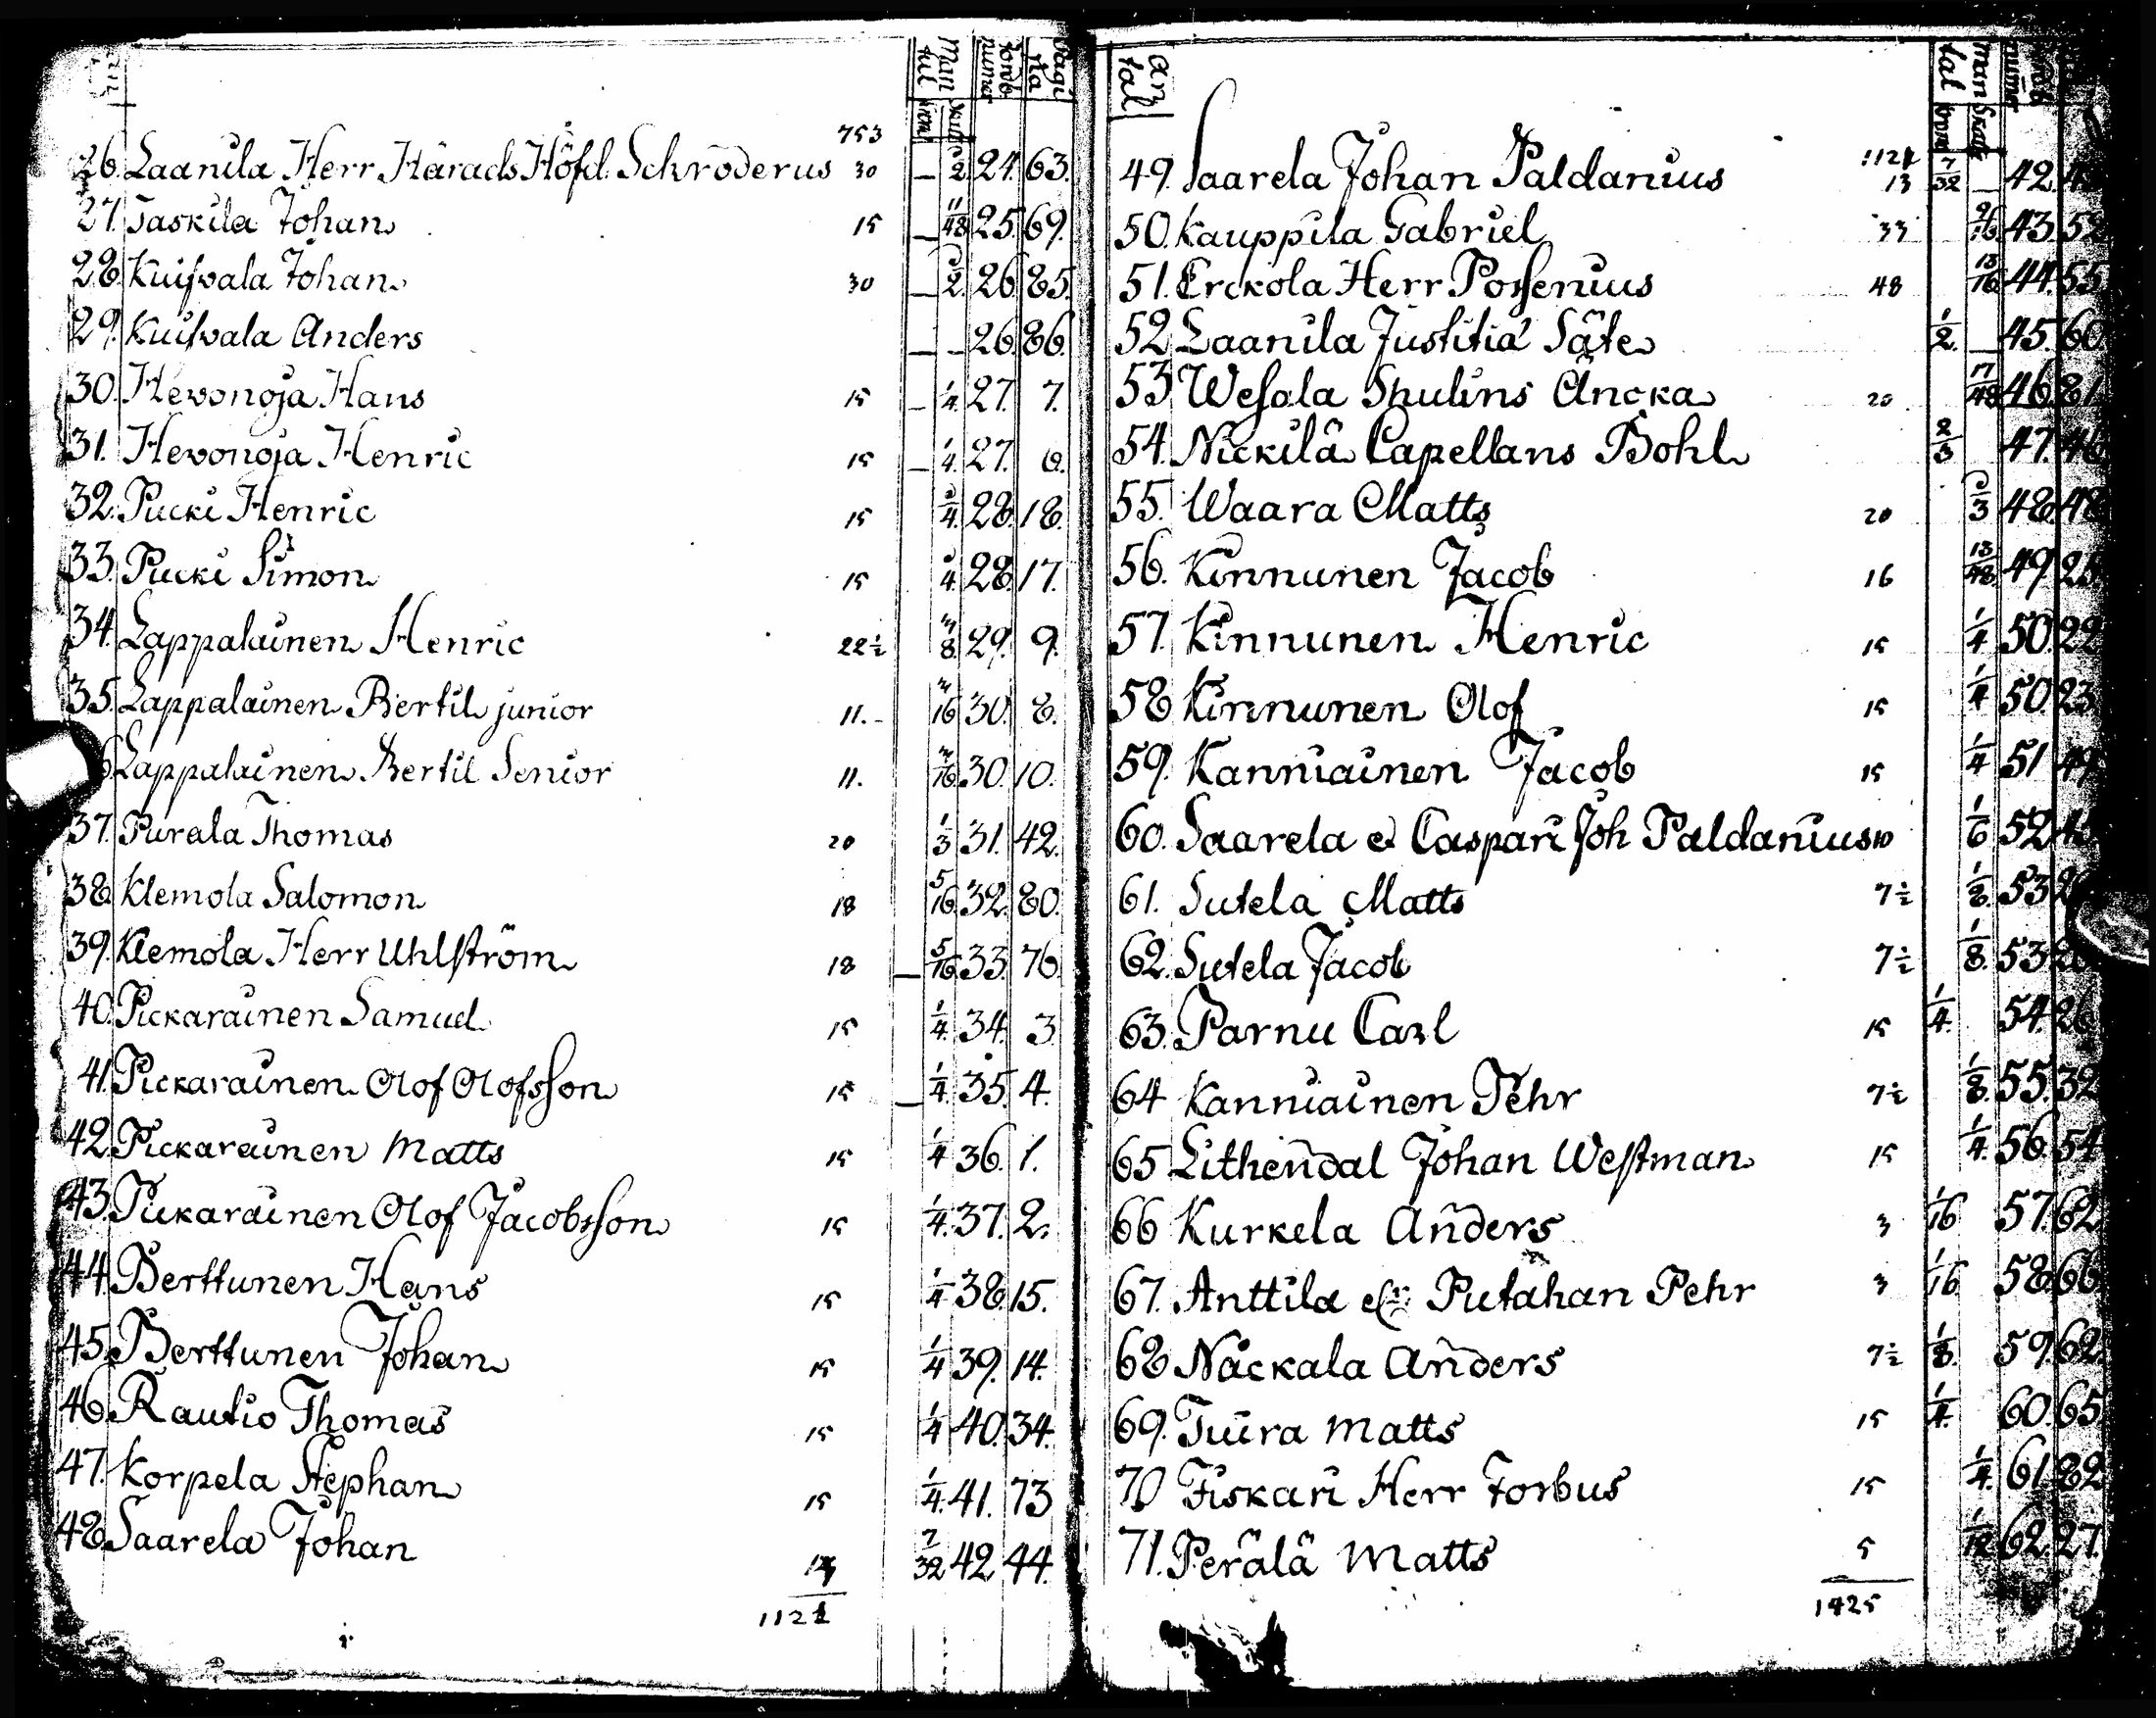 Man tal Jordb. numer Pagi na
Krono Skatte
753
26. Laanila Herr Härads Höfd. Schroderus 30 — 1/2 24. 63.
27. Taskila Johan 15 — 11/48 25. 69.
28. Kuifvala Johan 30 — 1/2. 26. 85.
29. Kuifvala Anders — — 26. 86.
30. Hevonoja Hans 15 — 1/4. 27. 7.
31. Hevonoja Henric 15 — 1/4. 27. 6.
32. Pucki Henric 15 1/4. 28. 18.
33. Pucki Simon 15 1/4. 28. 17.
34. Lappalainen Henric 22½ 3/8. 29. 9.
35. Lappalainen Bertil junior 11.- 3/16 30. 8.
Lappalainen Bertil Senior 11. 3/16. 30. 10.
37. Purala Thomas 20 1/3 31. 42.
38. Klemola Salomon 18 5/16. 32. 80.
39. Klemola Herr Uhlström 18 — 5/16. 33. 76
40. Pickarainen Samuel 15 1/4. 34. 3
41. Pickarainen Olof Olofsson 15 — 1/4. 35. 4.
42. Pickarainen Matts 15 1/4 36. 1.
43. Pickarainen Olof Jacobsson 15 1/4. 37. 2.
44. Berttunen Hans 15 1/4 38. 15.
45. Berttunen Johan 15 1/4 39. 14.
46. Rautio Thomas 15 1/4 40. 34.
47. Korpela Stephan 15 1/4. 41. 73
48. Saarela Johan 7/32 42. 44.
1121
an tal Man tal numer
Krono Skatte
1121
49. Saarela Johan Paldanius 13 7/32 — 42.
50. Kauppila Gabriel 33 9/16. 43. 52
51. Erckola Herr Possenius 48 13/16. 44. 55
52 Laanila Justitiæ Säte 1/2. — 45. 60
53 Wesala Spulins Äncka 20 17/48 46. 81
54. Nickilä Capellans Bohl 2/3 47. 46
55. Waara Matts 20 1/3 48. 48
56. Kinnunen Jacob 16 13/48. 49. 25
57. Kinnunen Henric 15 1/4 50. 22
58 Kinnunen Olof 15 1/4 50. 23
59. Kanniainen Jacob 15 1/4 51 49
60. Saarela et Caspari Joh Paldanius 10 1/6 52
61. Sutela Matts 7½ 1/8. 53
62. Sutela Jacob 7½ 1/8. 53
63. Parnu Carl 15 1/4. 54. 26
64 Kanniainen Pehr 7½ 1/8. 55. 32
65 Lithendal Johan Westman 15 1/4. 56. 54
66 Kurkela Anders 3 1/16 57. 62
67. Anttila Putahan Pehr 3 1/16 58. 66
68 Näckala Anders 7½ 1/8. 59. 62
69. Tuira Matts 15 1/4. 60. 65
70 Fiskari Herr Forbus 15 1/4. 61. 82
71. Perälä Matts 5 1/12. 62. 27.
1425